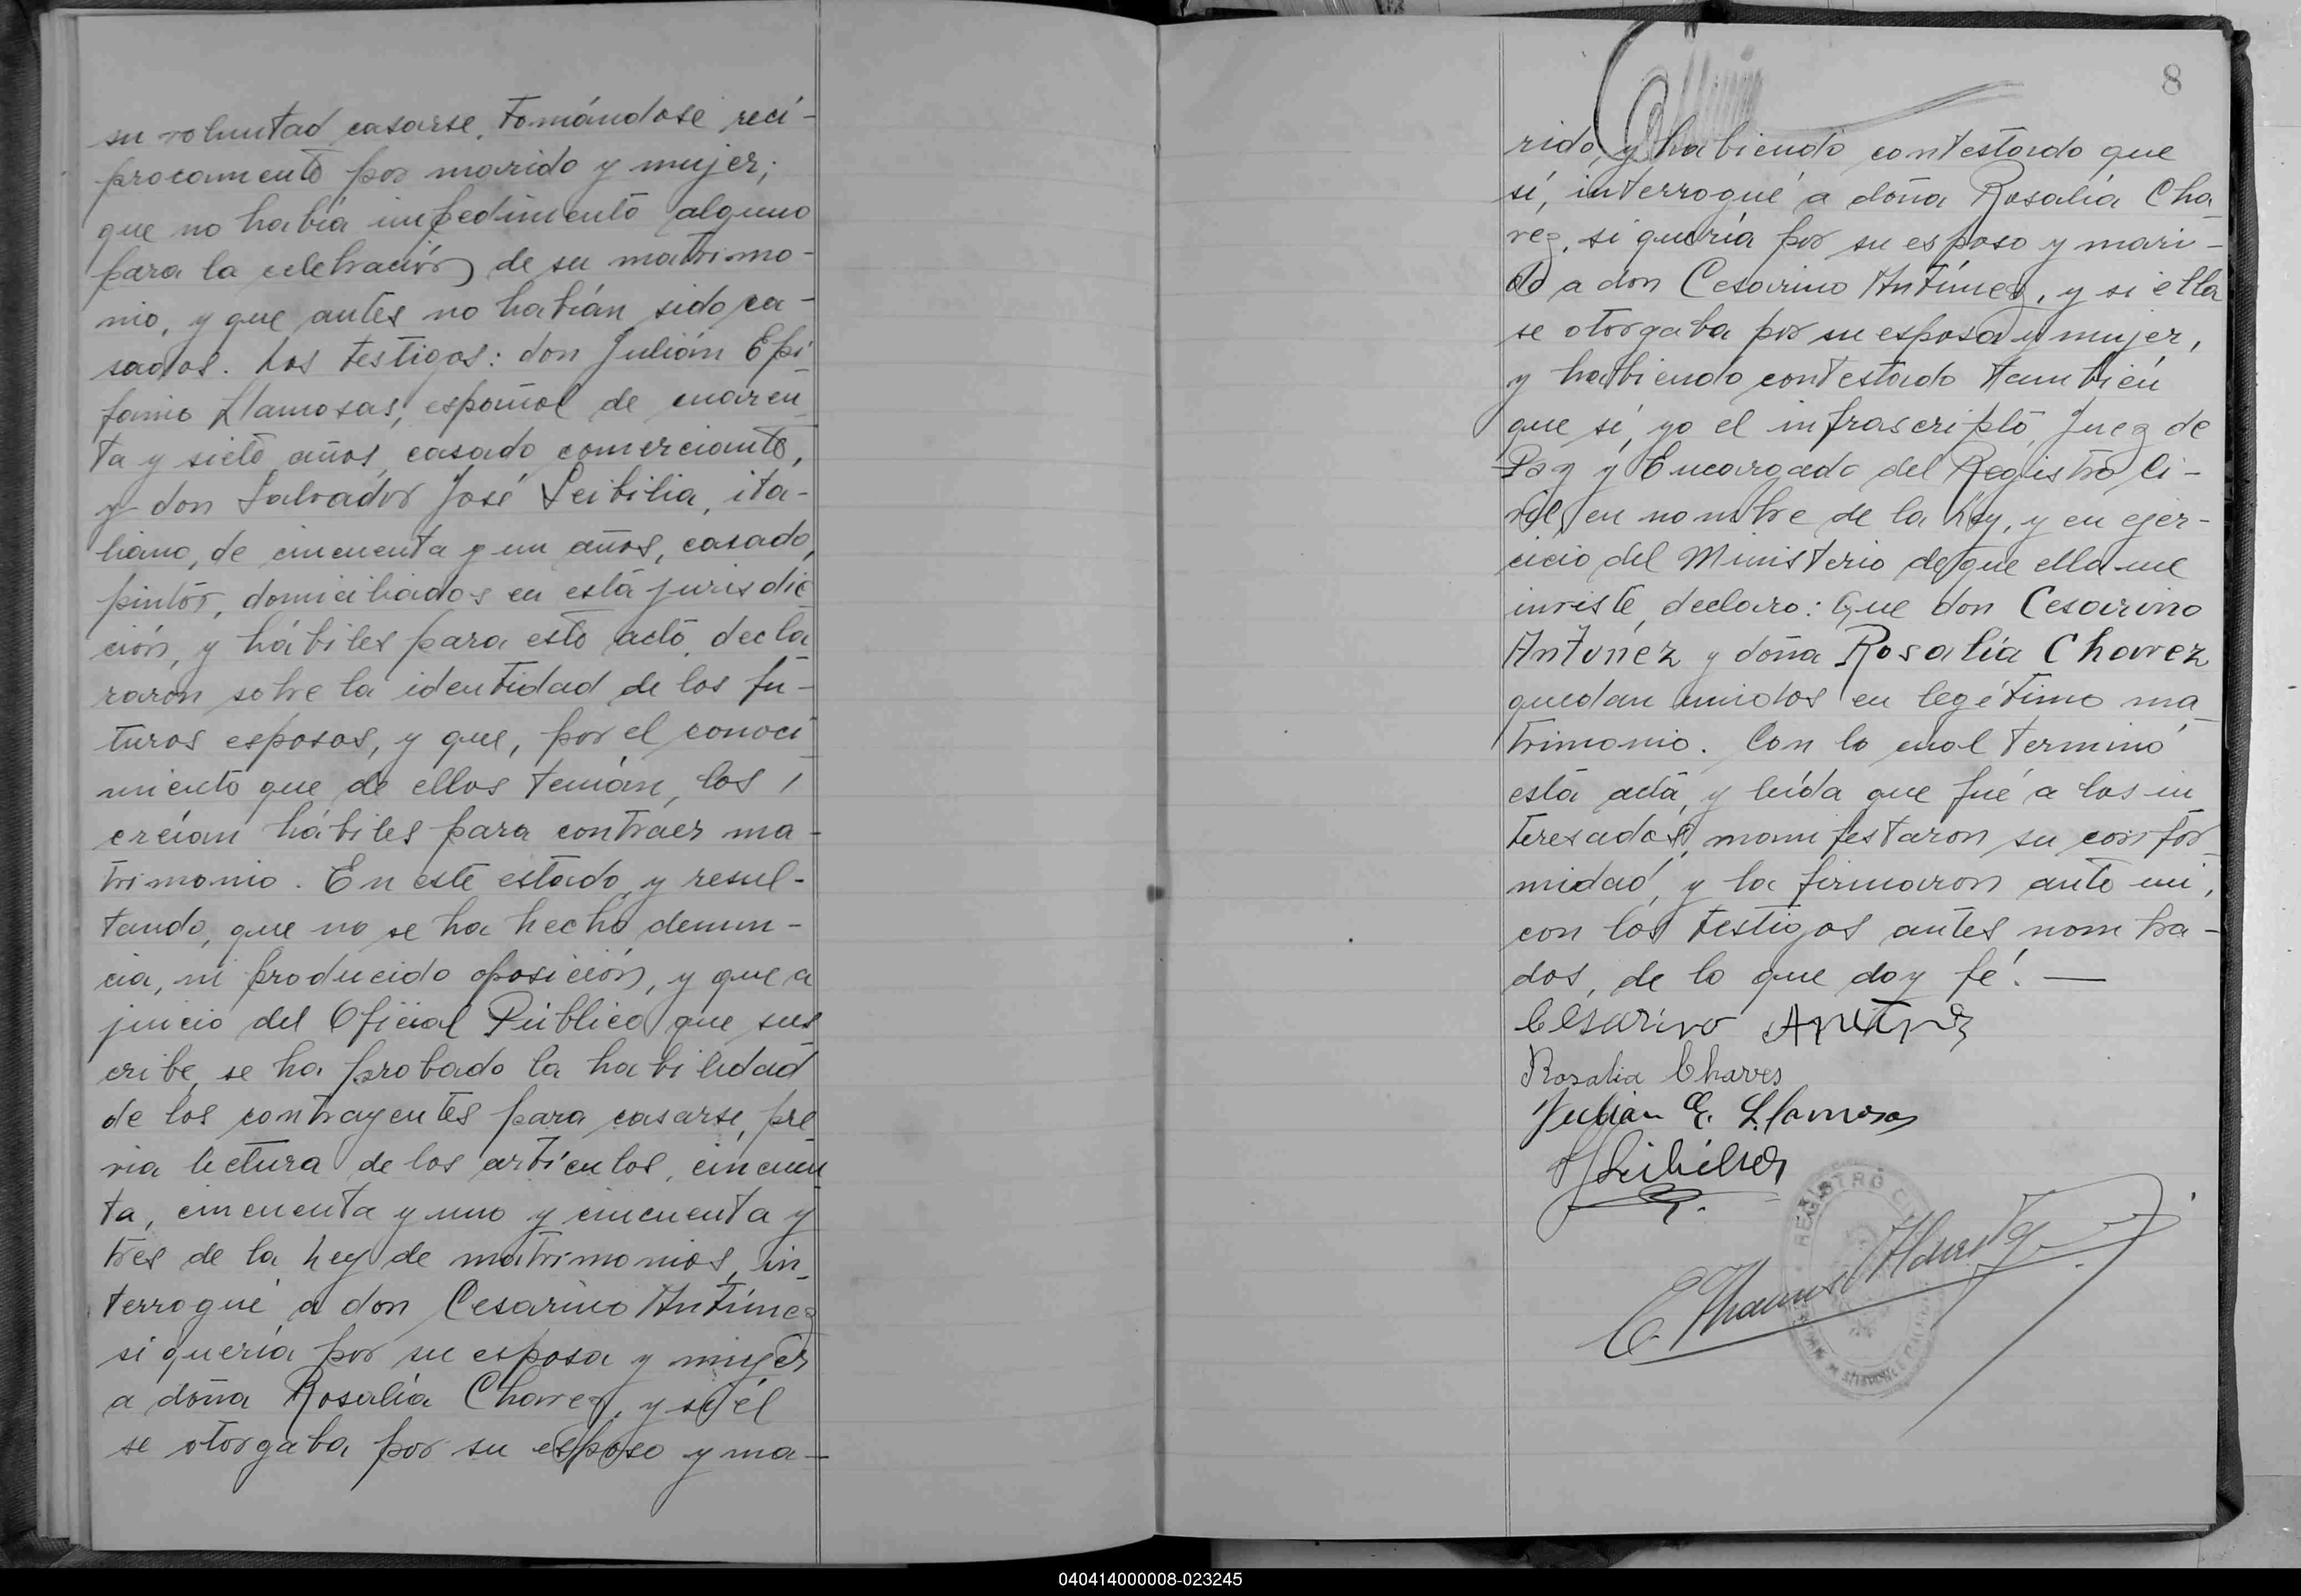 su voluntad casarse, tomándose recí-
procamente por marido y mujer;
que no había impedimento alguno
para la celebración de su matrimo-
nio, y que antes no habían sido ca-
sados. Los testigos: don Julián Epi-
fanio Llamosas, español de cuaren-
ta y siete años, casado comerciante,
y don Salvador José Scibilia, ita-
liano, de cincuenta y un años, casado,
pintor, domiciliados en esta jurisdic-
ción, y hábiles para este acto, decla-
raron sobre la identidad de los fu-
turos esposos, y que, por el conoci-
miento que de ellos tenían, los
creían hábiles para contraer ma-
trimonio. En este estado, y resul-
tando, que no se ha hecho denun-
cia, ni producido oposición, y que a
juicio del Oficial Público que sus
cribe, se ha probado la habilidad
de los contrayentes para casarse, pre-
via lectura de los artículos, cincuen-
ta, cincuenta y uno y cincuenta y
tres de la Ley de matrimonios, in-
terrogué a don Cesarino Antúnez
si quería por su esposa y mujer
a doña Rosalía Chavez, y si él
se otorgaba por su esposo y ma-
8
rido, y habiendo contestado que
sí, interrogué a doña Rosalía Cha-
vez, si quería por su esposo y mari-
do a don Cesarino Antúnez, y si ella
se otorgaba por su esposa y mujer,
y habiendo contestado también
que sí, yo el infrascripto, Juez de
Paz y Encargado del Registro Ci-
vil, en nombre de la Ley, y en ejer-
cicio del Ministerio de que ella me
inviste, declaro: Que don Cesarino
Antúnez y doña Rosalía Chavez
quedan unidos en legítimo ma-
trimonio. Con lo cual terminó
esta acta, y leída que fué a los in
teresados, manifestaron su confor-
midad, y la firmaron ante mi,
con los testigos antes nombra-
dos, de lo que doy fé. —
Cesarino Antunez
Rosalia Chaves
Julián E. Llamosas
REGISTRO CI
040414000008-023245